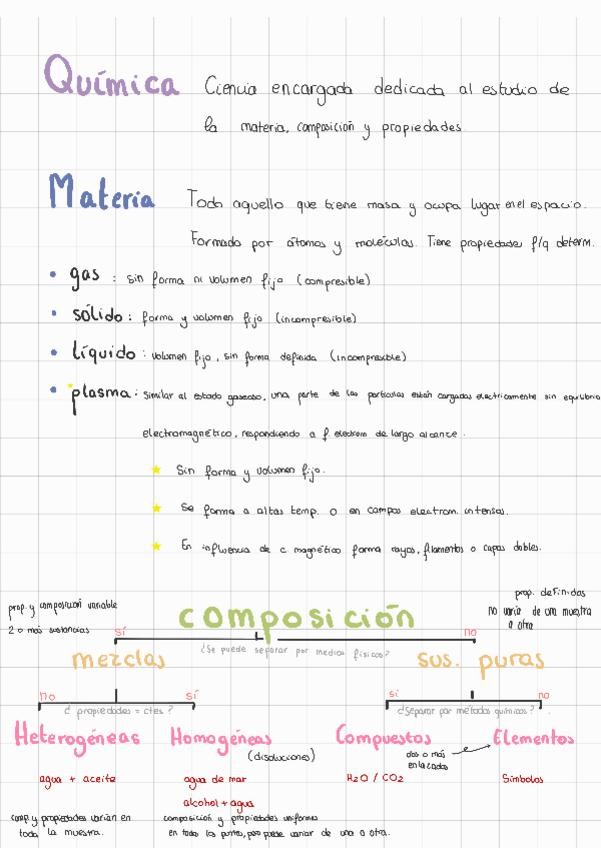 Química Ciencia encargada dedicada al estudio de
la materia, composición y propiedades.
Materia Todo aquello que tiene masa y ocupa lugar en el espacio.
Formado por átomos y moléculas. Tiene propiedades f/q determ.
• gas : sin forma ni volumen fijo (compresible)
• sólido : forma y volumen fijo (incompresible)
• líquido : volumen fijo, sin forma definida (incompresible)
• plasma : similar al estado gaseoso, una parte de las partículas están cargadas eléctricamente sin equilibrio
electromagnético, respondiendo a f. electrom de largo alcance.
★ Sin forma y volumen fijo.
★ Se forma a altas temp. o en campos electrom. intensos.
★ En influencia de c magnético forma rayos, filamentos o capas dobles.
prop. y composición variable
2 o más sustancias
composición
prop. definidas
no varía de una muestra
a otra
sí
¿Se puede separar por medios físicos?
no
mezclas
sus. puras
no
¿ propiedades = ctes ?
sí
sí
¿Separar por métodos químicos?
no
Heterogéneas
Homogéneas
(disoluciones)
Compuestos
dos o más
enlazados
Elementos
agua + aceite
agua de mar
alcohol + agua
H2O / CO2
Símbolos
comp y propiedades varían en
toda la muestra.
composición y propiedades uniformes
en todos los puntos, pero puede variar de una a otra.